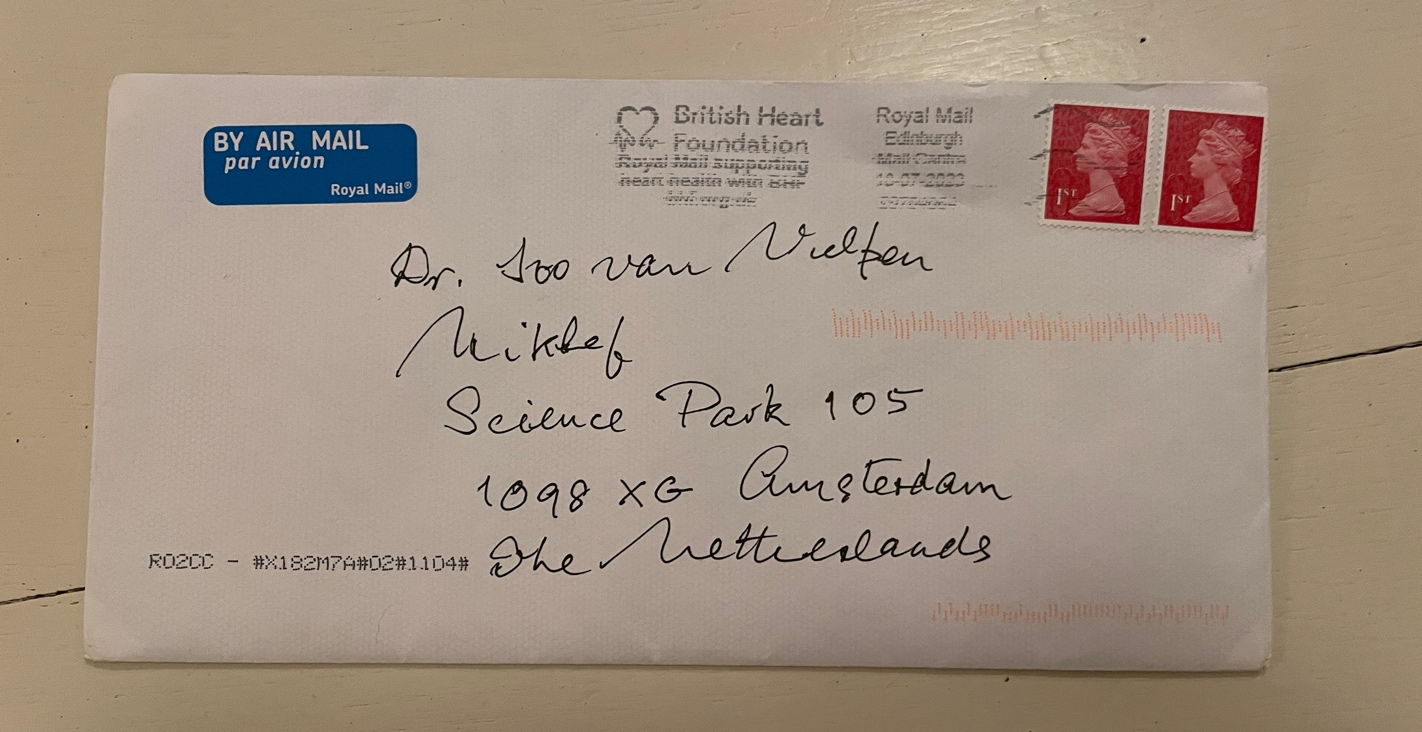 BY AIR MAIL
par avion
Royal Mail®
British Heart
Foundation
Royal Mail supporting
heart health with BHF
bhf.org.uk
Royal Mail
Edinburgh
Mail Centre
10-07-2023
1ST
1ST
Dr. Ivo van Vulpen
Nikhef
Science Park 105
1098 XG Amsterdam
The Netherlands
RO2CC - #X182M7A#02#1104#